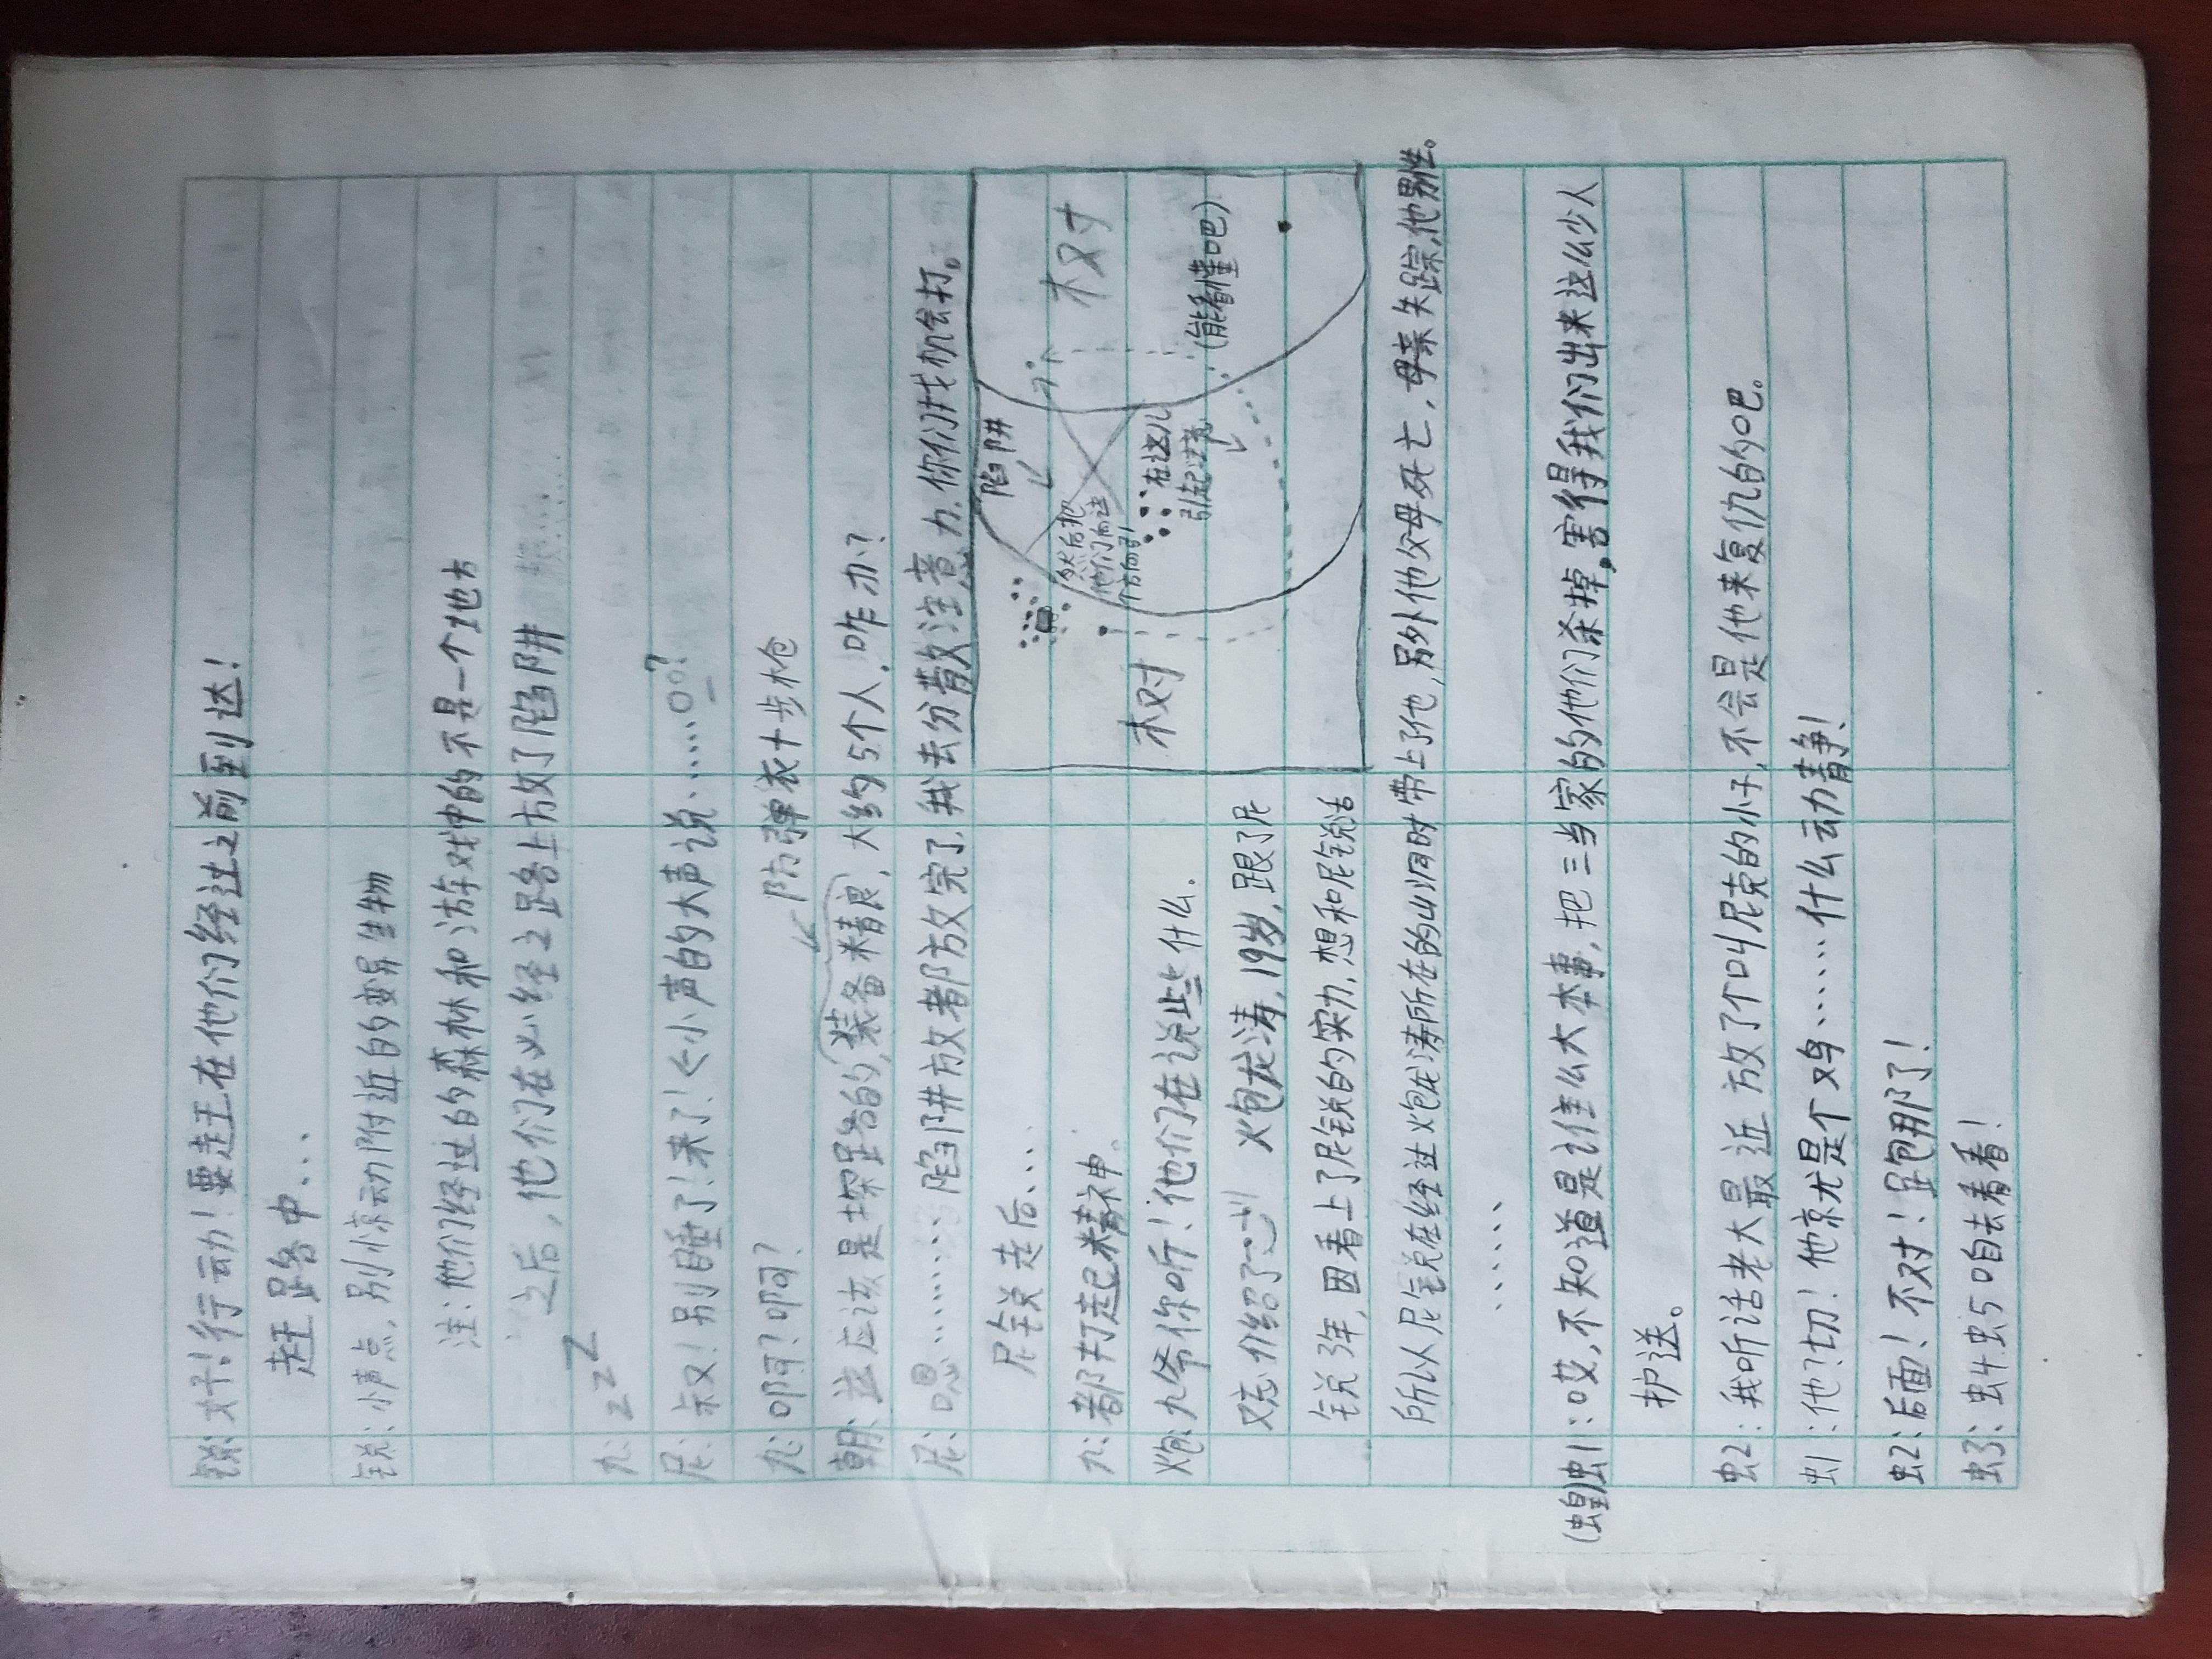 锐:对!行动!要赶在他们经过之前到达!
赶路中...
锐:小声点,别惊动附近的变异生物
注:他们经过的森林和沽车对中的不是一个地方
之后,他们在必经之路上放了陷阱
九:zzZ
尼:叔叉!别睡了!来了!<小声的大声说......
九:啊?啊?
防弹衣+步枪
朝:这应该是探路的,装备精良,大约5个人.咋办?
尼:嗯........陷阱放都放完了,我去分散注意力.你们找机会打。
尼锐走后...
九:都打起精神。
炮:九爷你听!他们在说些什么.
又忘介绍了 炮龙涛,19岁,跟了尼
锐3年,因看上了尼锐的实力,想和尼锐活
所以人尼锐在经过炮龙涛所在的山洞时带上了他,另外他父母死亡,母亲失踪,他男性。
......
陷阱
权对
权对
然后把
他们向这
个方向引
在这儿
引起注意
(能看懂吧)
(蝗)虫1:哎,不知道是谁这么大本事,把三当家的他们杀掉,害得我们出来这么少人
护送。
虫2:我听话老大最近放了个叫尼克的小子,不会是他来复仇的吧。
虫1:他?切!他京尤是个鸡......什么动静!
虫2:后面!不对!跑那了!
虫3:虫4虫5咱去看看!